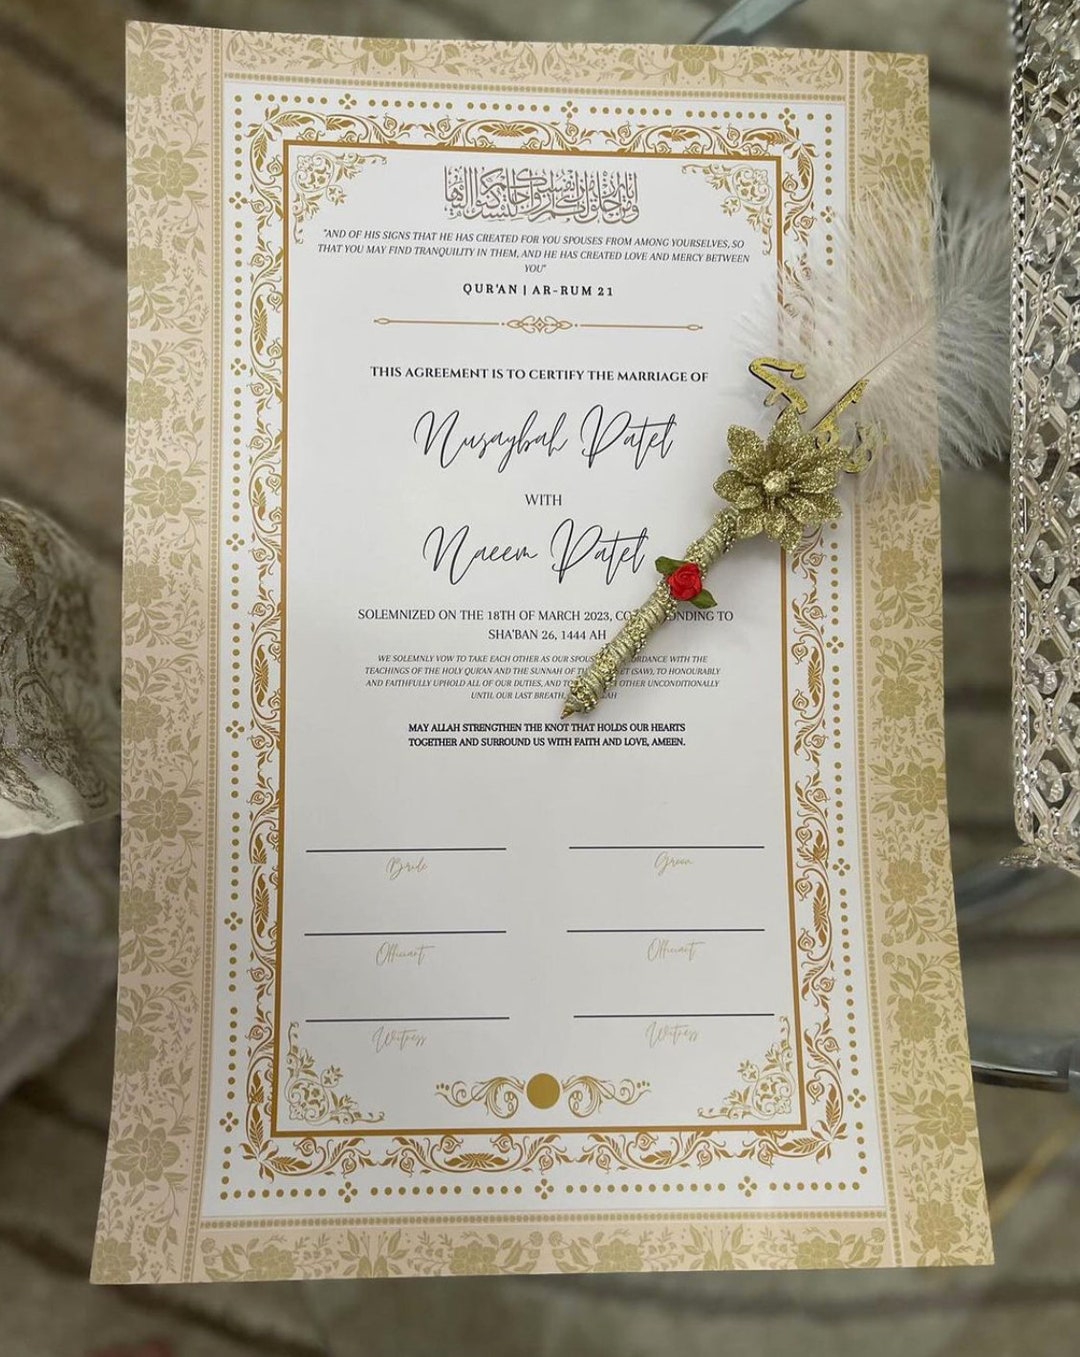 ومن آياته أن خلق لكم من أنفسكم أزواجا لتسكنوا إليها
"AND OF HIS SIGNS THAT HE HAS CREATED FOR YOU SPOUSES FROM AMONG YOURSELVES, SO
THAT YOU MAY FIND TRANQUILITY IN THEM, AND HE HAS CREATED LOVE AND MERCY BETWEEN
YOU"
QUR'AN | AR-RUM 21
THIS AGREEMENT IS TO CERTIFY THE MARRIAGE OF
Nusaybah Patel
WITH
Naeem Patel
SOLEMNIZED ON THE 18TH OF MARCH 2023, TO
SHA'BAN 26, 1444 AH
WE SOLEMNLY VOW TO TAKE EACH OTHER AS OUR WITH THE
TEACHINGS OF THE HOLY QURAN AND THE SUNNAH OF (SAW), TO HONOURABLY
AND FAITHFULLY UPHOLD ALL OF OUR DUTIES, AND OTHER UNCONDITIONALLY
UNTIL OUR LAST BREATH,
MAY ALLAH STRENGTHEN THE KNOT THAT HOLDS OUR HEARTS
TOGETHER AND SURROUND US WITH FAITH AND LOVE, AMEEN.
Bride
Groom
Officiant
Officiant
Witness
Witness